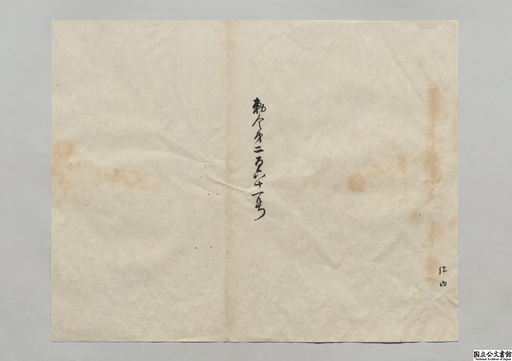 勅令第二百六十一号
国立公文書館
National Archives of Japan